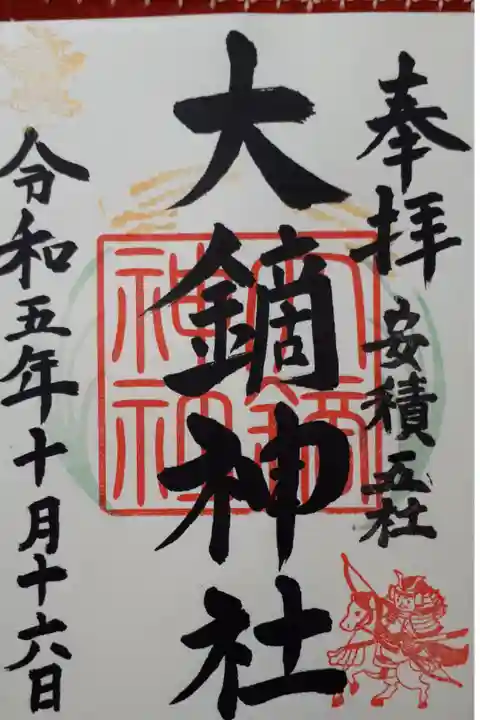 奉拝
安積五社
大鏑神社
大鏑神社
令和五年十月十六日